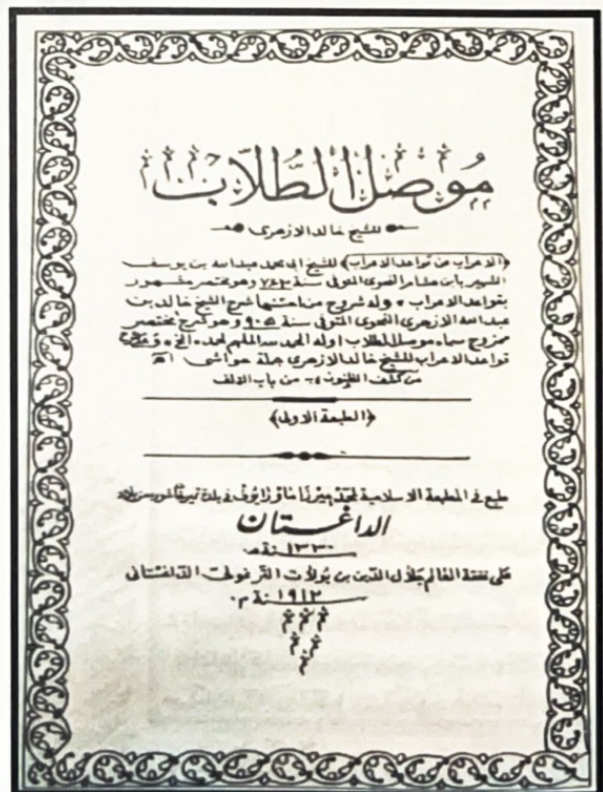 موصل الطلاب
للشيخ خالد الازهرى
(الاعراب عن قواعد الاعراب) للشيخ ابى محمد عبد الله بن يوسف
الشهير بابن هشام النحوى المتوفى سنة ٧٦٢ وهو مختصر مشهور
بقواعد الاعراب وله شروح من احسنها شرح الشيخ خالد بن
عبد الله الازهرى النحوى المتوفى سنة ٩٠٥ وهو شرح مختصر
ممزوج سماه موصل الطلاب اوله الحمد لله الملهم لحمده الخ
قواعد الاعراب للشيخ خالد الازهرى جملة حواشى اه
من كشف الظنون من باب الالف
(الطبعة الاولى)
طبع فى المطبعة الاسلامية لمحمد ميرزا ماورايوف فى بلدة تيمرخانشوره من بلاد
الداغستان
١٣٣٠ سنة هـ
على نفقة العالم جلال الدين بن بولات الداغستانى
١٩١٢ سنة م.